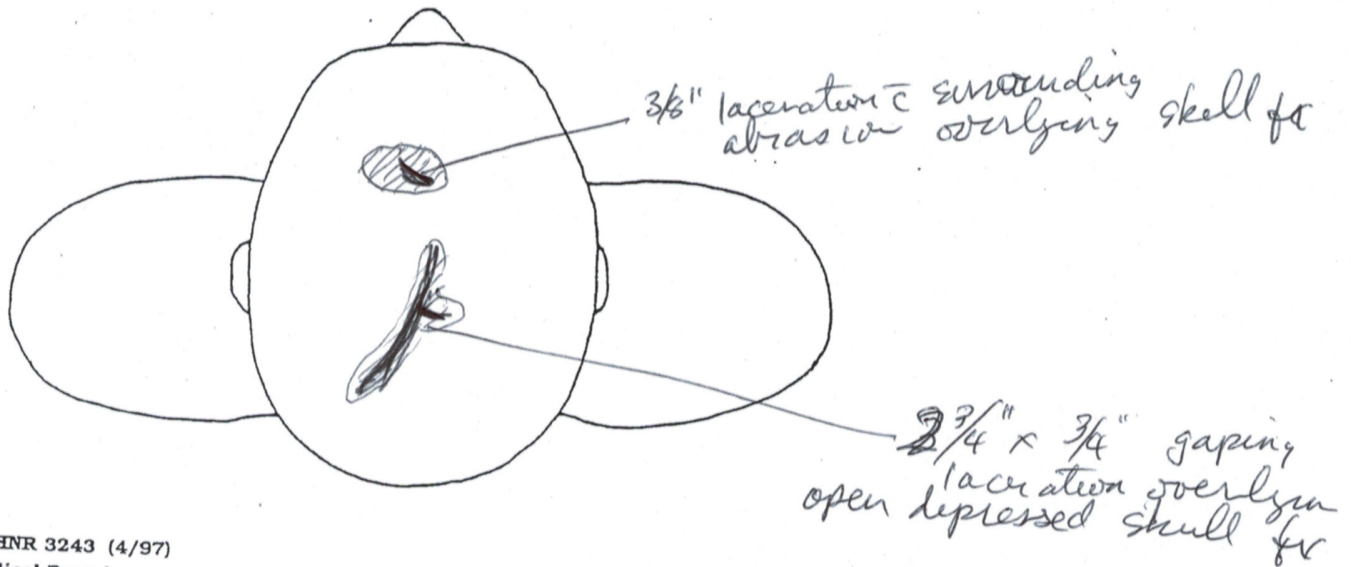 3/8" laceration c̄ surrounding
abrasion overlying skull fx
2 3/4" x 3/4" gaping
laceration overlyin
open depressed skull fx
HNR 3243 (4/97)